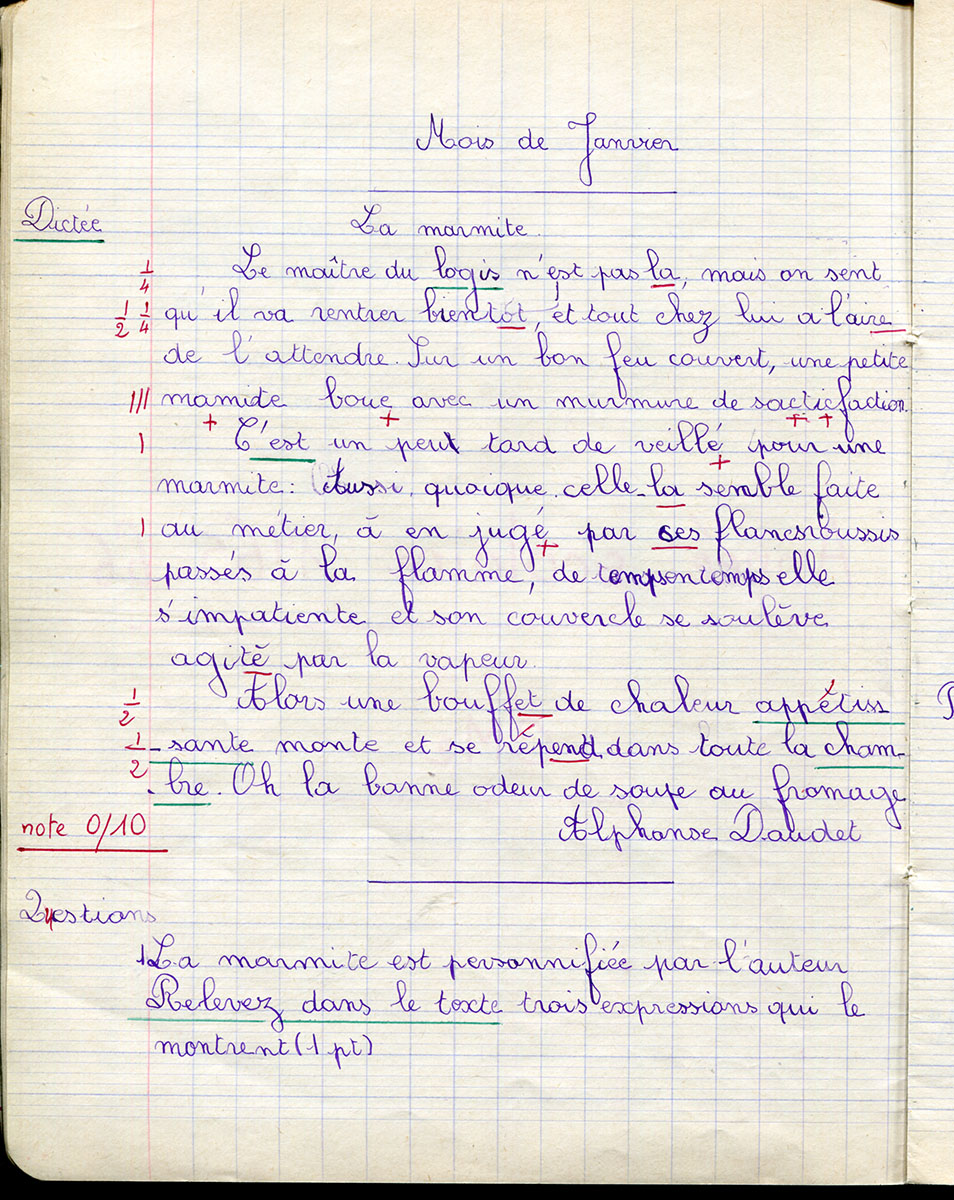 Mois de Janvier
Dictée
La marmite.
1/4 Le maître du logis n'est pas la, mais on sent
1/2 1/4 qu'il va rentrer bientôt, et tout chez lui a l'aire
de l'attendre. Sur un bon feu couvert, une petite
||| mamite boue avec un murmure de sacticfaction.
| C'est un peu tard de veillé pour une
marmite: Aussi, quoique celle-la semble faite
| au métier, à en jugé par ses flancs roussis
passés à la flamme, de temps en temps elle
s'impatiente et son couvercle se soulève
agité par la vapeur.
1/2 Alors une bouffet de chaleur appétiss
1/2 -sante monte et se répend dans toute la cham-
-bre. Oh la bonne odeur de soupe au fromage
note 0/10
Alphonse Daudet
Questions
1 La marmite est personnifiée par l'auteur
Relevez dans le texte trois expressions qui le
montrent (1 pt)